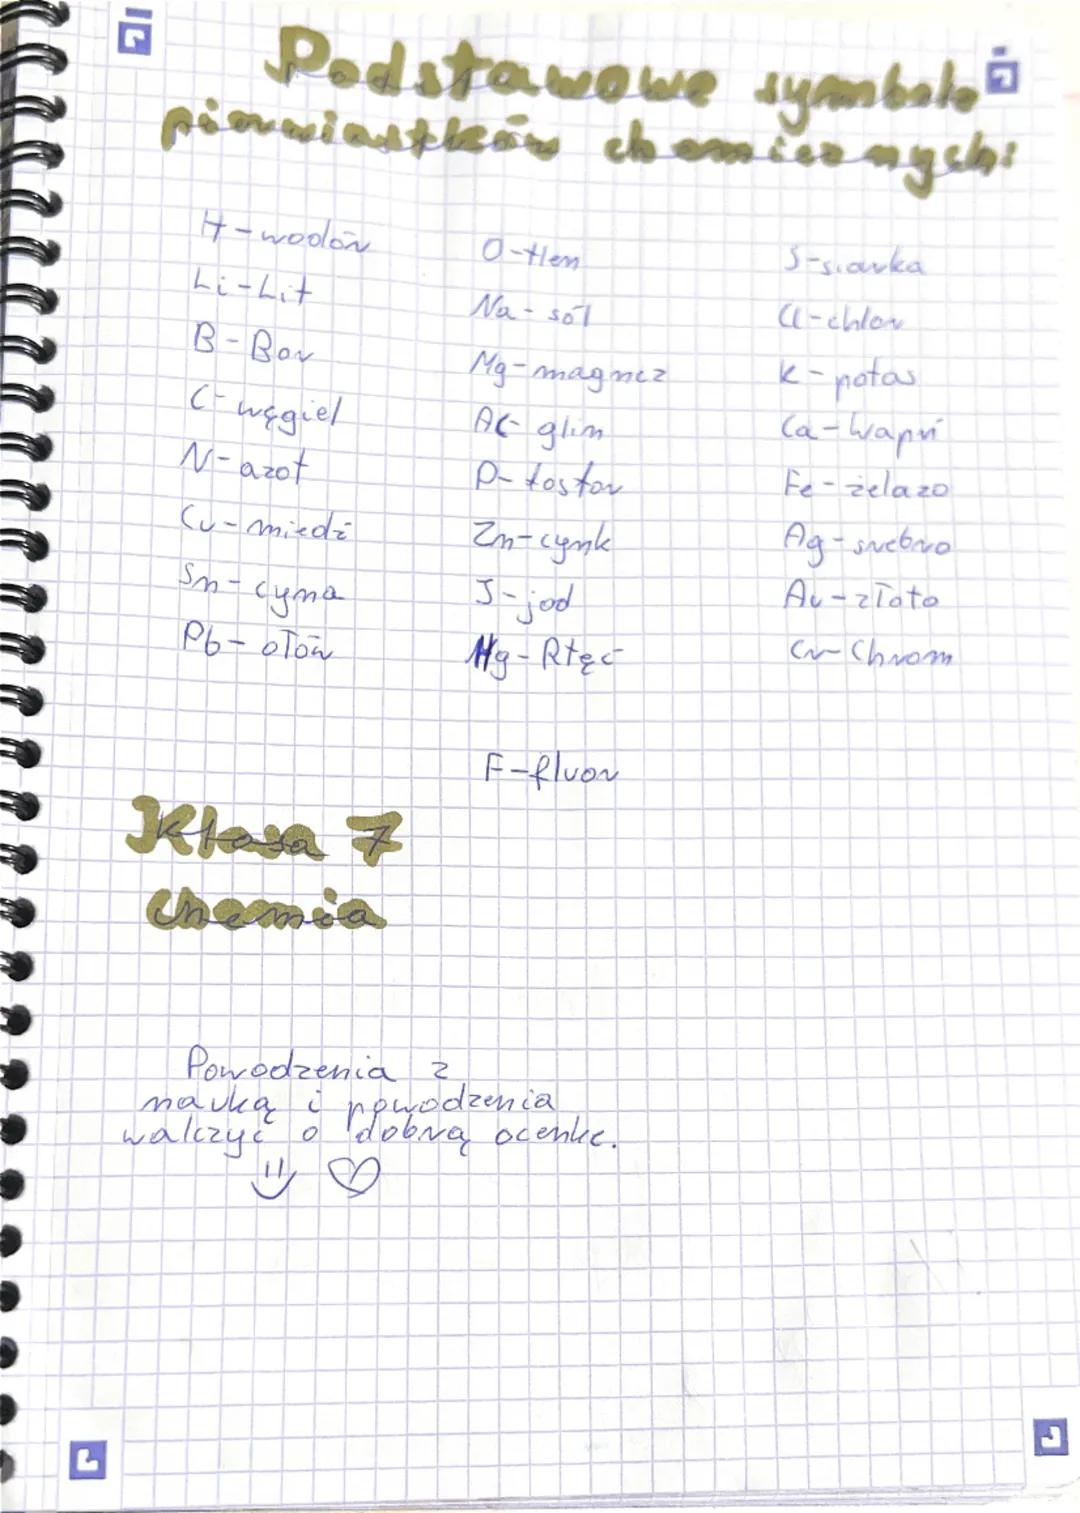 Podstawowe symbole
pierwiastków chemicznych:
H-wodór
Li-Lit
B-Bor
C-węgiel
N-azot
Cu-miedź
Sn-cyna
Pb-ołów
O-tlen
Na-sól
Mg-magnez
Al-glin
P-fosfor
Zn-cynk
J-jod
Hg-Rtęć
F-fluor
S-siarka
Cl-chlor
K-potas
Ca-Wapń
Fe-żelazo
Ag-srebro
Au-złoto
Cr-Chrom
Klasa 7
Chemia
Powodzenia z
nauką i powodzenia
walczyć o dobrą ocenkę.